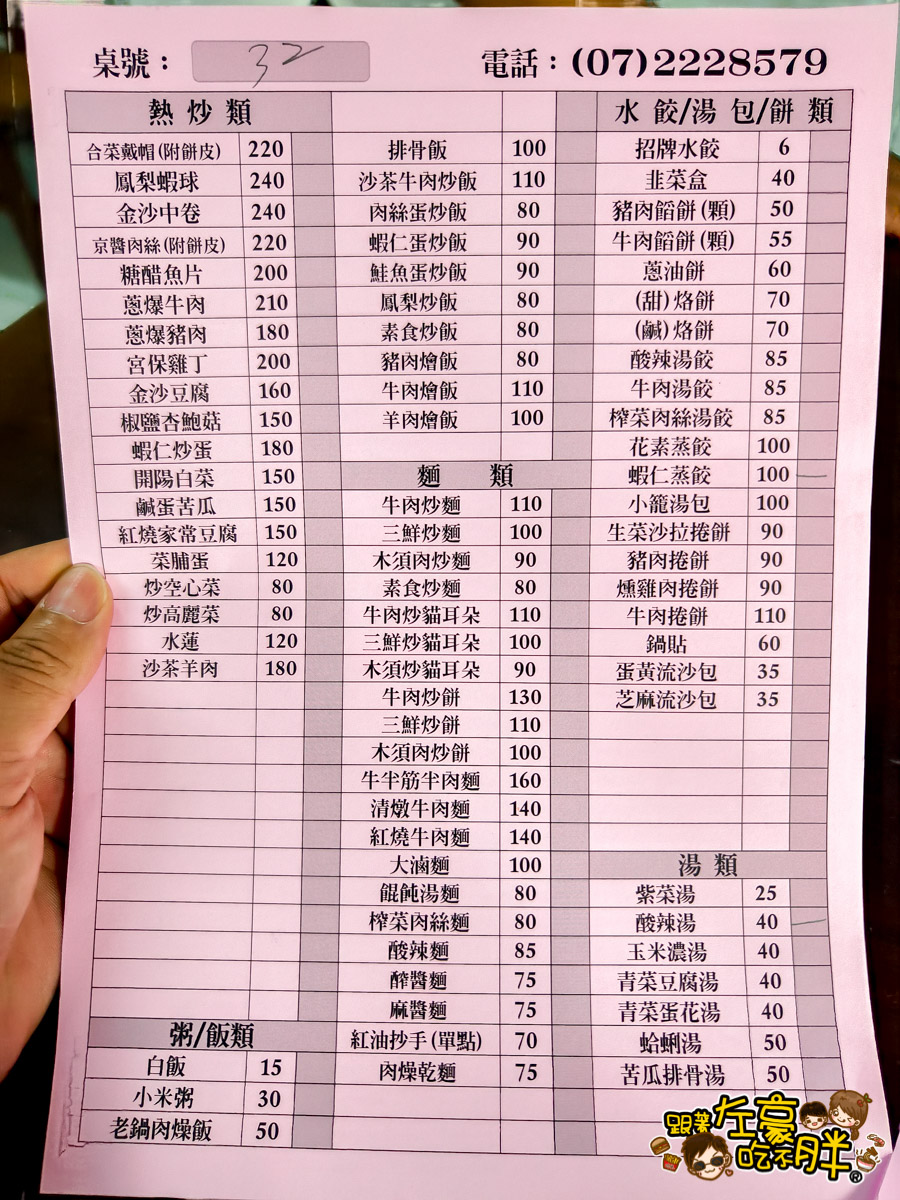 桌號： 32 電話：(07)2228579
熱炒類
合菜戴帽(附餅皮) 220
鳳梨蝦球 240
金沙中卷 240
京醬肉絲(附餅皮) 220
糖醋魚片 200
蔥爆牛肉 210
蔥爆豬肉 180
宮保雞丁 200
金沙豆腐 160
椒鹽杏鮑菇 150
蝦仁炒蛋 180
開陽白菜 150
鹹蛋苦瓜 150
紅燒家常豆腐 150
菜脯蛋 120
炒空心菜 80
炒高麗菜 80
水蓮 120
沙茶羊肉 180
粥/飯類
白飯 15
小米粥 30
老鍋肉燥飯 50
排骨飯 100
沙茶牛肉炒飯 110
肉絲蛋炒飯 80
蝦仁蛋炒飯 90
鮭魚蛋炒飯 90
鳳梨炒飯 80
素食炒飯 80
豬肉燴飯 80
牛肉燴飯 110
羊肉燴飯 100
麵 類
牛肉炒麵 110
三鮮炒麵 100
木須肉炒麵 90
素食炒麵 80
牛肉炒貓耳朵 110
三鮮炒貓耳朵 100
木須炒貓耳朵 90
牛肉炒餅 130
三鮮炒餅 110
木須肉炒餅 100
牛半筋半肉麵 160
清燉牛肉麵 140
紅燒牛肉麵 140
大滷麵 100
餛飩湯麵 80
榨菜肉絲麵 80
酸辣麵 85
醡醬麵 75
麻醬麵 75
紅油抄手(單點) 70
肉燥乾麵 75
水餃/湯包/餅類
招牌水餃 6
韭菜盒 40
豬肉餡餅(顆) 50
牛肉餡餅(顆) 55
蔥油餅 60
(甜)烙餅 70
(鹹)烙餅 70
酸辣湯餃 85
牛肉湯餃 85
榨菜肉絲湯餃 85
花素蒸餃 100
蝦仁蒸餃 100
小籠湯包 100
生菜沙拉捲餅 90
豬肉捲餅 90
燻雞肉捲餅 90
牛肉捲餅 110
鍋貼 60
蛋黃流沙包 35
芝麻流沙包 35
湯類
紫菜湯 25
酸辣湯 40
玉米濃湯 40
青菜豆腐湯 40
青菜蛋花湯 40
蛤蜊湯 50
苦瓜排骨湯 50
跟著左豪吃不胖®